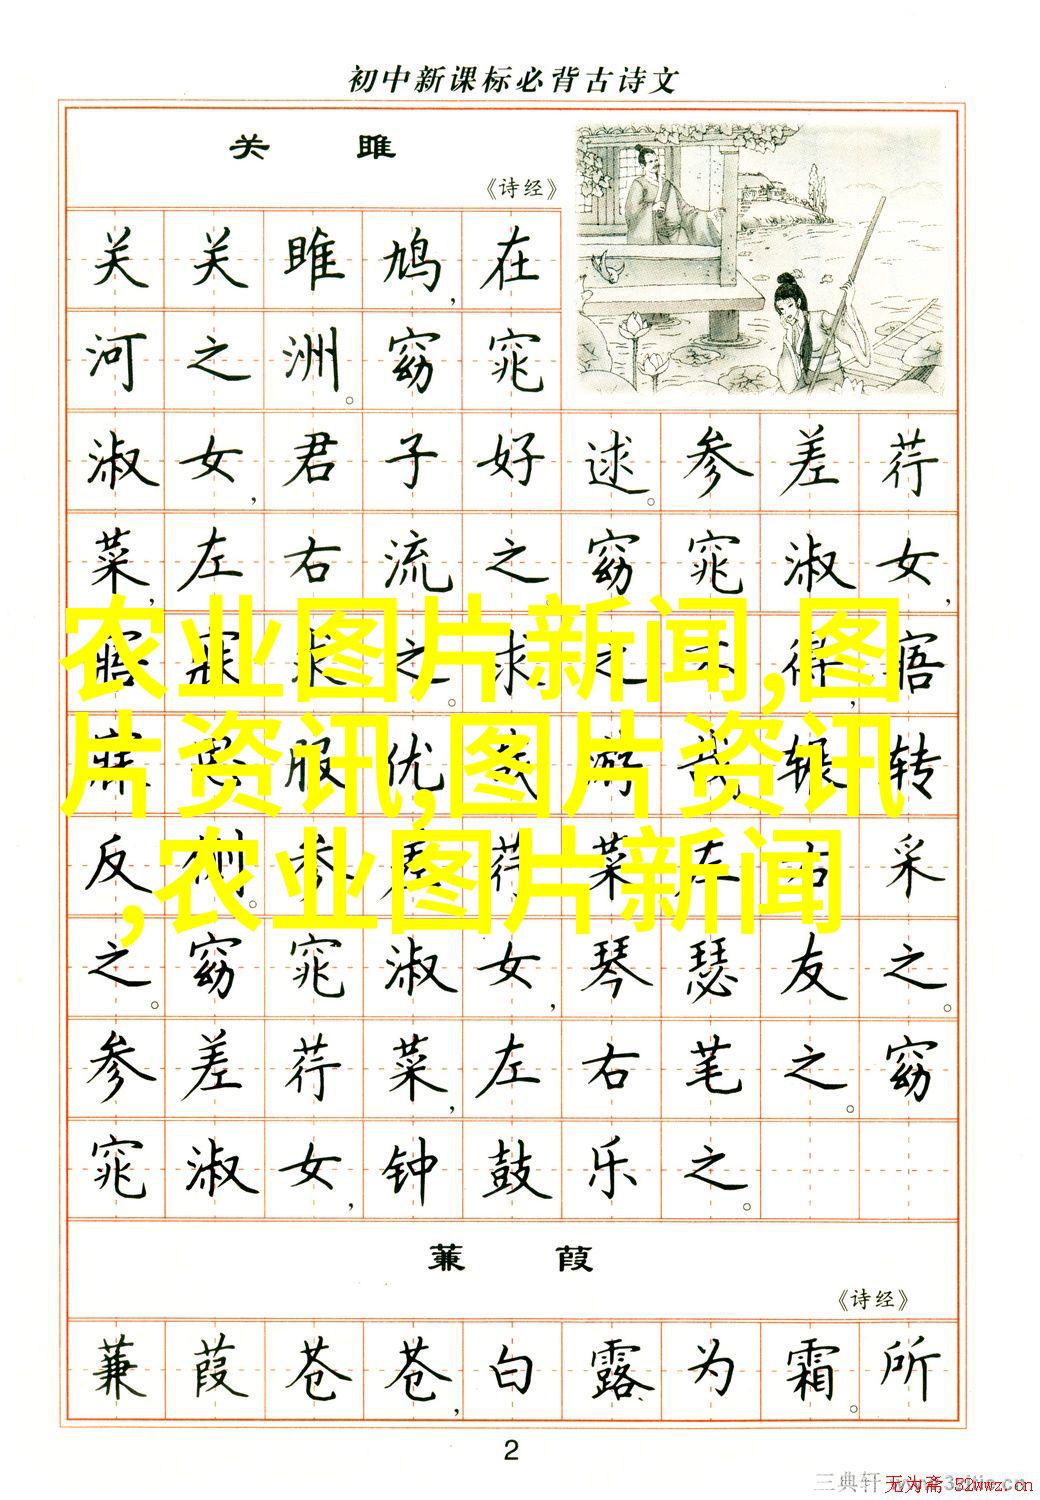 初中新课标必背古诗文
关 雎
《诗经》
关关雎鸠,在
河之洲。窈窕
淑女,君子好逑。参差荇
菜,左右流之。窈窕淑女,
寤寐求之。求之不得,寤
寐思服优哉游哉,辗转
反侧。参差荇菜左右采
之。窈窕淑女,琴瑟友之。
参差荇菜,左右芼之。窈
窕淑女,钟鼓乐之。
蒹 葭
《诗经》
蒹葭苍苍,白露为霜。所
2
农业图片新闻,图
片资讯,图片资讯
,农业图片新闻
三典轩
无为斋 52wwz.cn